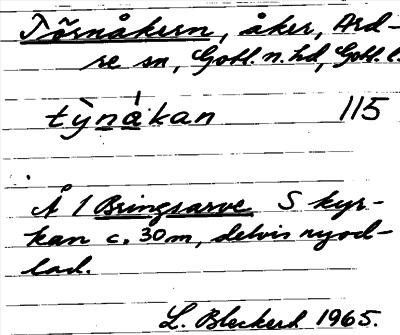 Törnåkern, åker, Ard-
re sn, Gotl. n. hd, Gotl. l.
tỳnåkan 115
Å 1 Bringsarve S kyr-
kan c. 30m, delvis nyod-
lad.
L. Bleckerd 1965.